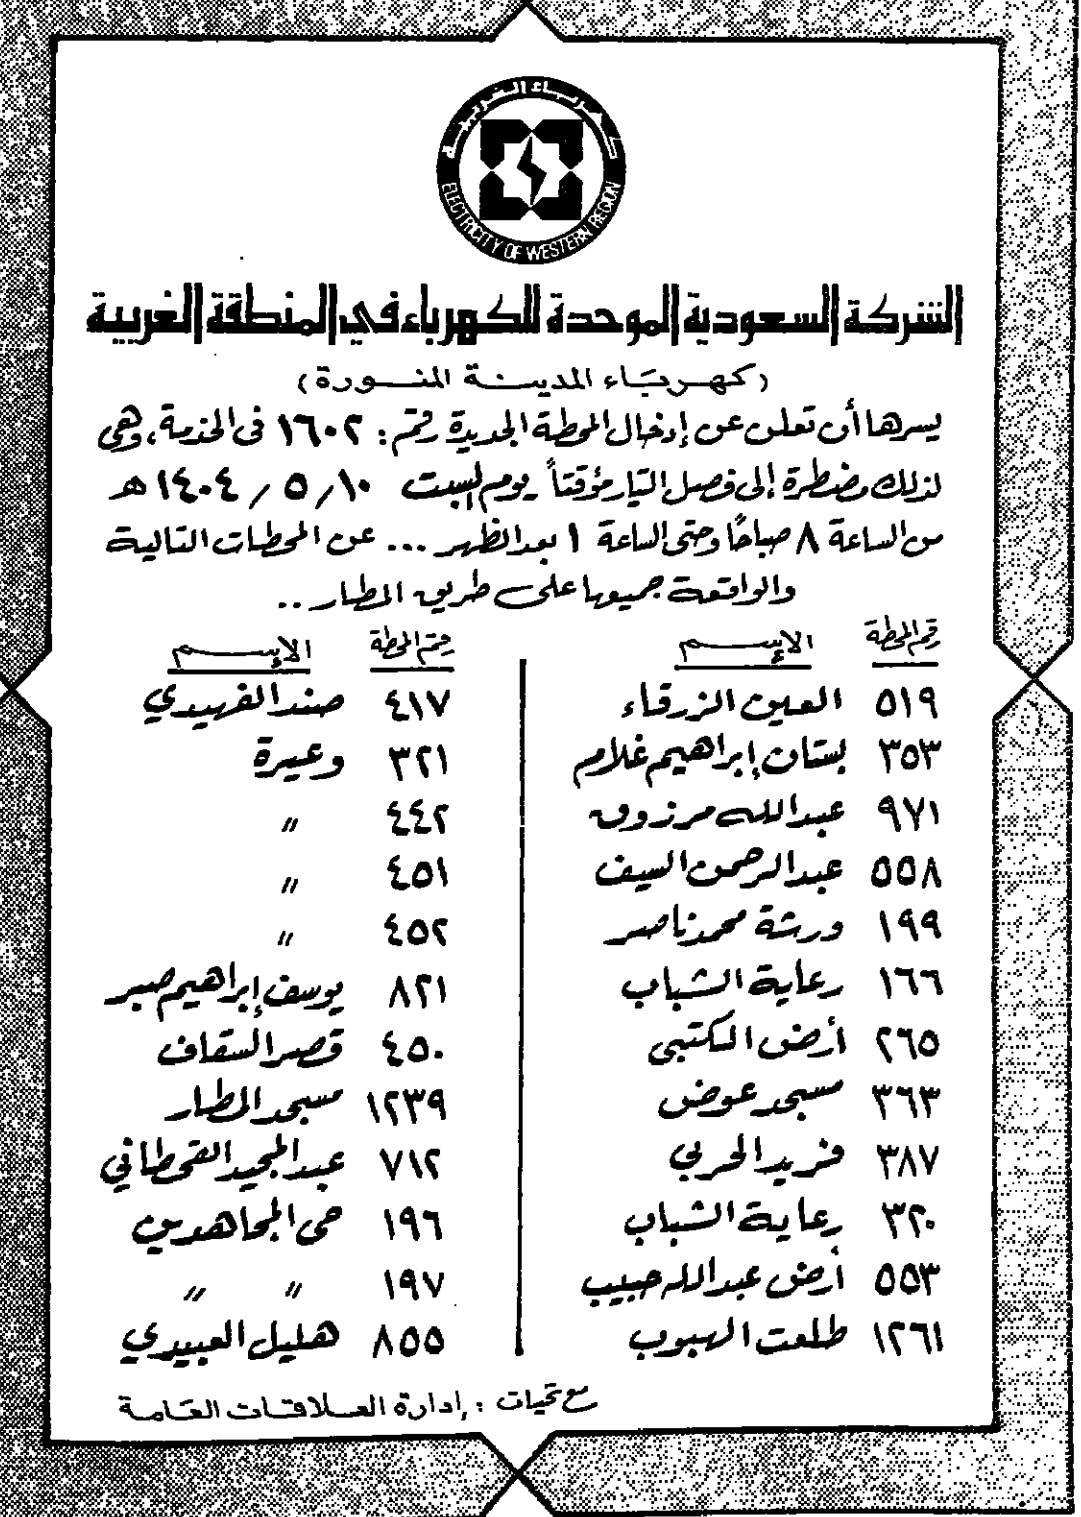 كهرباء الغربية
ELECTRICITY OF WESTERN REGION
الشركة السعودية الموحدة للكهرباء في المنطقة الغربية
(كهرباء المدينة المنورة)
يسرها أن تعلن عن إدخال المحطة الجديدة رقم : ١٦٠٢ فى الخدمة، وهى
لذلك مضطرة إلى فصل التيار مؤقتاً يوم السبت ١٠ / ٥ / ١٤٠٤ هـ
من الساعة ٨ صباحًا وحتى الساعة ١ بعد الظهر ... عن المحطات التالية
والواقعة جميعها على طريق المطار ..
رقم المحطة الإسم
٥١٩ العين الزرقاء
٣٥٣ بستان إبراهيم غلام
٩٧١ عبدالله مرزوق
٥٥٨ عبدالرحمن السيف
١٩٩ ورشة محمد ناصر
١٦٦ رعاية الشباب
٢٦٥ أرض الكتبى
٣٦٣ مسجد عوض
٣٨٧ فريد الحربي
٣٢٠ رعاية الشباب
٥٥٣ أرض عبدالله حبيب
١٢٦١ طلعت الهبوب
رقم المحطة الإسم
٤١٧ صند الفهيدي
٣٢١ وعيرة
٤٤٢ 〃
٤٥١ 〃
٤٥٢ 〃
٨٢١ يوسف إبراهيم صبر
٤٥٠ قصر السقاف
١٢٣٩ مسجد المطار
٧١٢ عبد المجيد القحطاني
١٩٦ حى المجاهدين
١٩٧ 〃 〃
٨٥٥ هليل العبيدي
مع تحيات : إدارة العلاقات العامة